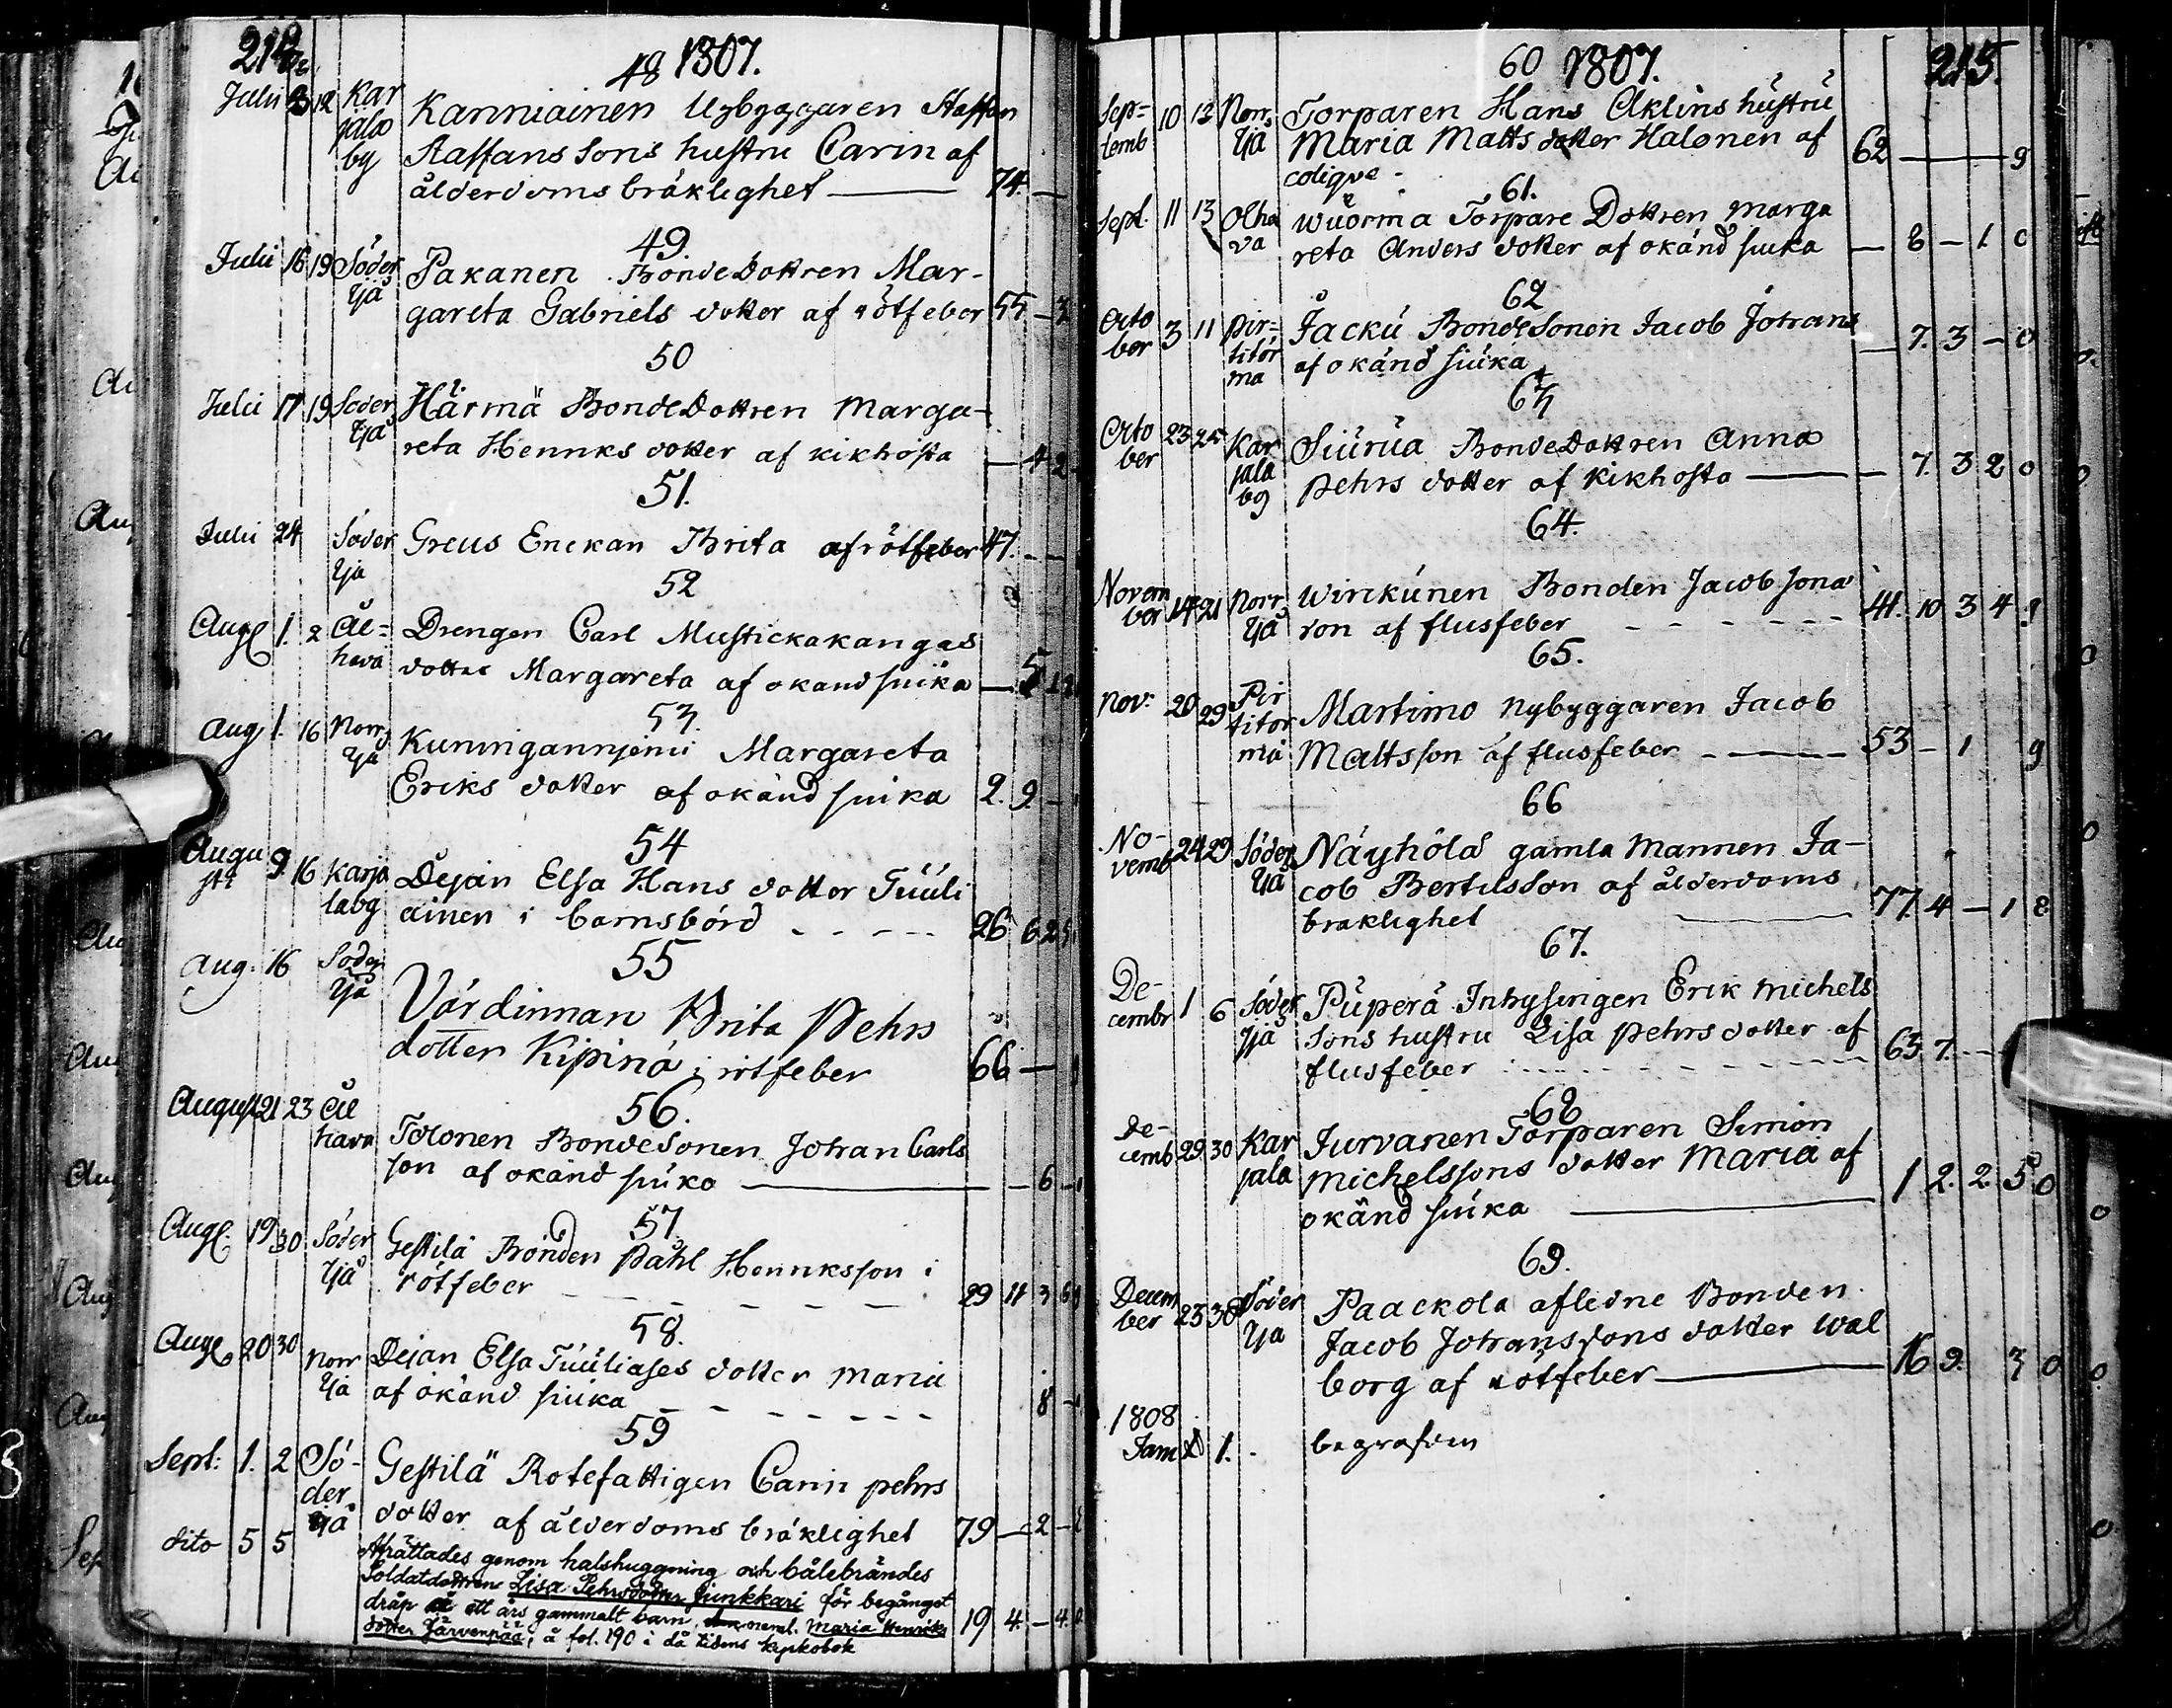 214
48 1807.
Julii 3 12 Kar
jala
by
Kanniainen Nybyggaren Staffan
Staffans Sons hustru Carin af
ålderdoms bräklighet — 74. —
49.
Julii 16 19 Söder
Ijå
Pakanen BondeDottren Mar-
gareta Gabriels dotter af rötfeber 55 - 3
50
Julii 17 19 Söder
Ijå
Härmä BondeDottren Marga-
reta Henriks dotter af kikhosta — 4 2
51.
Julii 24 Söder
Ijå
Greus Enckan Brita af rötfeber 47. - -
52
Aug 1. 2 Ål-
hava
Drengen Carl Mustickakangas
dotter Margareta af okand siuka — 5
53.
Aug 1. 16 Norr
Ijå
Kuningannjemi Margareta
Eriks dotter af okänd siuka 2. 9 -
54
Augu
sti 9. 16 Karja
laby
Dejan Elsa Hans dotter Tuuli
ainen i barnsbörd - - - - - 26 6 2
55
Aug. 16 Söder
Ijå
Värdinnan Brita Pehrs
dotter Kipinä i rötfeber 66 —
56.
August 21 23 Ål
hava
Tolonen BondeSonen Johan Carls
son af okänd siuka — 6 -
57
Aug. 19 30 Söder
Ijå
Gestilä Bonden Påhl Henriksson i
rötfeber - - - - - - 29 11 3 6
58.
Aug 20 30 Norr
Ijå
Dejan Elsa Tuuliases dotter Maria
af okänd siuka - - - - - - - 8 -
59
Sept: 1. 2 Sö-
der
Ijå
Gestilä Rotefattigen Carin pehrs
dotter af ålderdoms bräklighet 79 — 2 -
dito 5 5
Afrättades genom halshuggning och bålebrändes
Soldatdottren Lisa Pehrsdotter Junkkari för begånget
dråp å ett års gammalt barn, neml. Maria Henriks
dotter Järvenpää; å fol. 190 i då tidens kyrkobok
19 4. — 4.
215.
60 1807.
Sep-
temb 10 13 Norr
Ijå
Torparen Hans Aklins hustru
Maria Matts dotter Halonen af
colique -
62 — 9
61.
Sept. 11 13 Olha
va
Wuorma Torpare Dottren Marga
reta Anders dotter af okänd siuka — 8 - 1. 0
62
Octo
ber 3 11 Pir-
titör
ma
Jacku BondeSonen Jacob Johans
af okänd siuka — 7. 3 - 0
63
Octo
ber 23 25 Kar
jala
by
Siurua BondeDottren Anna
Pehrs dotter af Kikhosta — 7. 3 2 0
64.
Novem
ber 14 21 Norr
Ijå
Wirckunen Bonden Jacob Jona
son af flusfeber - - - - - - 41. 10 3 4
65.
Nov: 20 29 Pir
titör
mä
Martimo nybyggaren Jacob
Mattsson af flusfeber - — 53 - 1 9
66
No-
vemb 24 29 Söder
Ijå
Näyhölä gamla Mannen Ja-
cob Bertilsson af ålderdoms
braklighet — 77. 4 — 1 8
67.
De-
cembr 1 6 Söder
Ijå
Puperä Inhysingen Erik Michels
Sons hustru Lisa Pehrs dotter af
flusfeber - - - - - - 63 7. - -
68
De-
cemb 29 30 Kar
jala
Jurvanen Torparen Simon
Michelssons dotter Maria af
okänd siuka — 1 2. 2. 5 0
69.
Decem
ber 23 30 Söder
Ijå
Paackola afledne Bonden
Jacob Johanssons dotter Wal
borg af rötfeber — 16 9. 3 0
1808
Janu 1. - begrafven